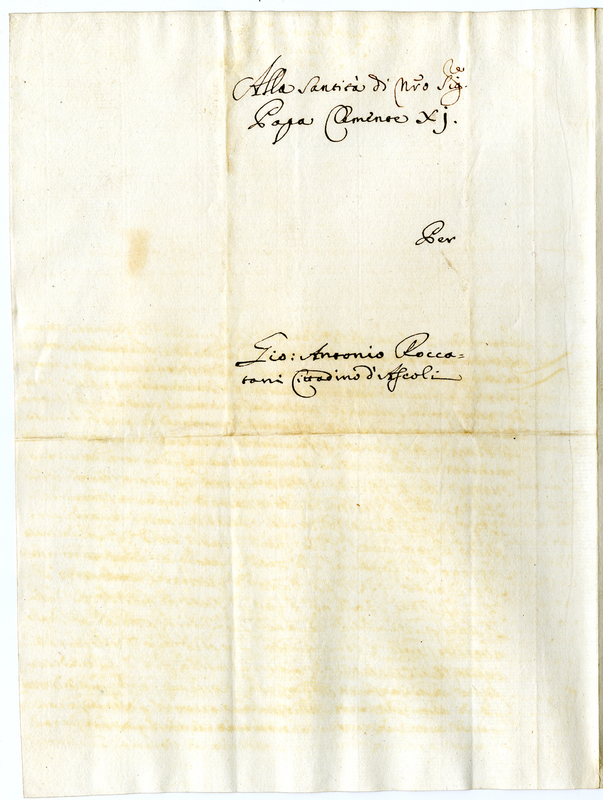 Alla Santità di Nro Sig.re
Papa Clemente XJ.
Per
Gio: Antonio Rocca=
tani Cittadino d'Ascoli